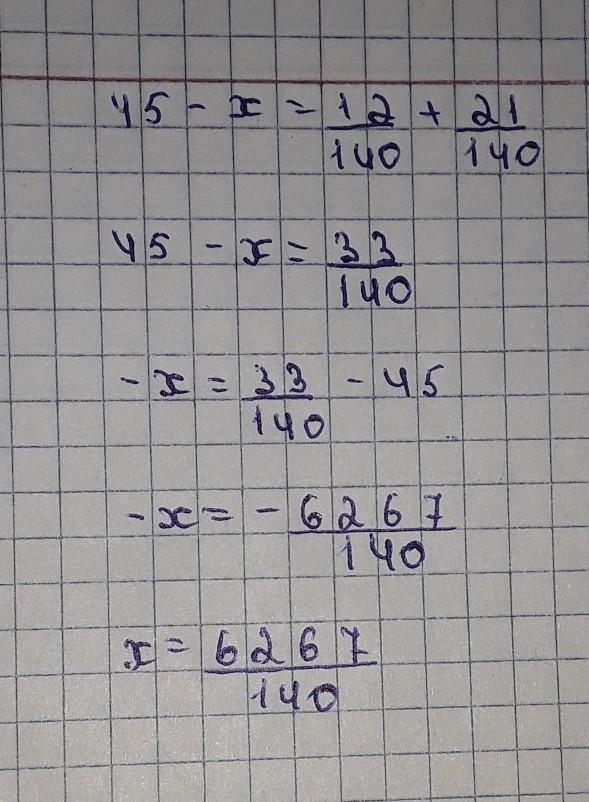 45 - x = 12/140 + 21/140
45 - x = 33/140
-x = 33/140 - 45
-x = - 6267/140
x = 6267/140